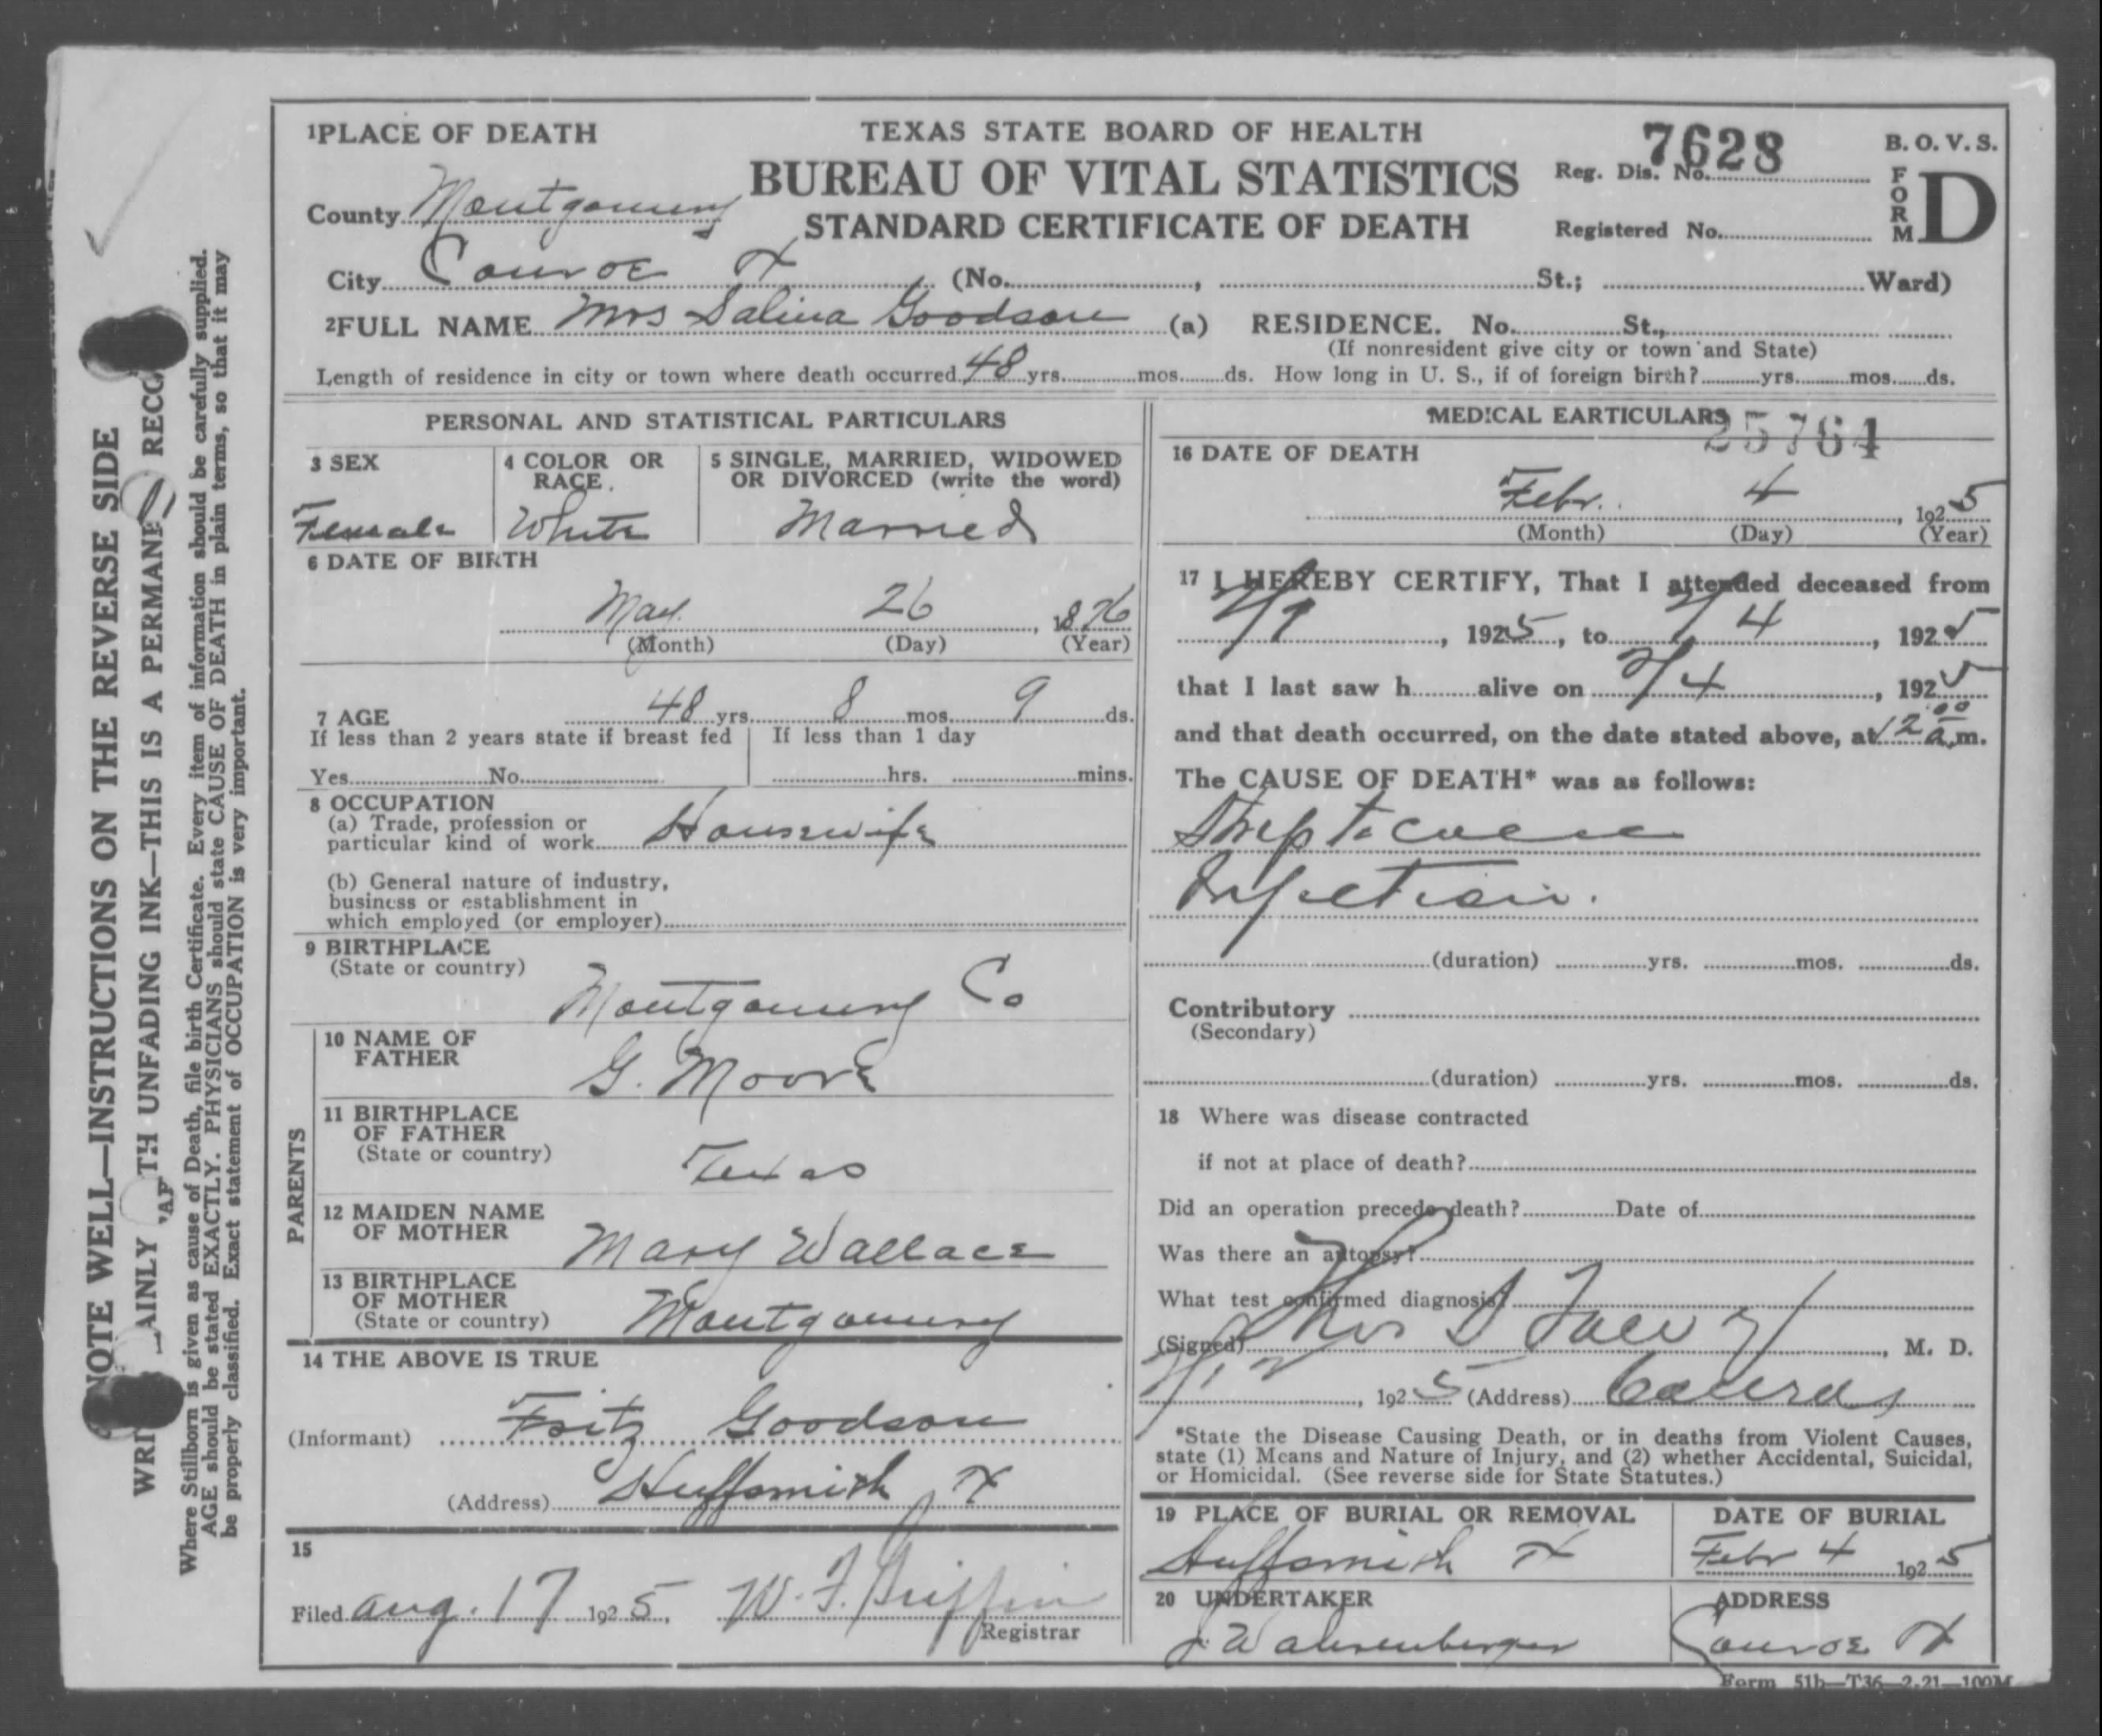 NOTE WELL—INSTRUCTIONS ON THE REVERSE SIDE
WRI AINLY TH UNFADING INK—THIS IS A PERMANE RECO
Where Stillborn is given as cause of Death, file birth Certificate. Every item of information should be carefully supplied.
AGE should be stated EXACTLY. PHYSICIANS should state CAUSE OF DEATH in plain terms, so that it may
be properly classified. Exact statement of OCCUPATION is very important.
1 PLACE OF DEATH
TEXAS STATE BOARD OF HEALTH
BUREAU OF VITAL STATISTICS
STANDARD CERTIFICATE OF DEATH
Reg. Dis. No. 7628
Registered No.
B. O. V. S.
FORM D
County Montgomery
City Conroe Tx (No. , St.; Ward)
2 FULL NAME Mrs Salina Goodson (a) RESIDENCE. No. St.,
(If nonresident give city or town and State)
Length of residence in city or town where death occurred 48 yrs. mos. ds. How long in U. S., if of foreign birth? yrs. mos. ds.
PERSONAL AND STATISTICAL PARTICULARS
3 SEX
Female
4 COLOR OR RACE.
White
5 SINGLE, MARRIED, WIDOWED
OR DIVORCED (write the word)
Married
6 DATE OF BIRTH
May 26, 1876
(Month) (Day) (Year)
7 AGE 48 yrs. 8 mos. 9 ds.
If less than 2 years state if breast fed If less than 1 day
Yes No hrs. mins.
8 OCCUPATION
(a) Trade, profession or
particular kind of work Housewife
(b) General nature of industry,
business or establishment in
which employed (or employer)
9 BIRTHPLACE
(State or country)
Montgomery Co
PARENTS
10 NAME OF
FATHER
G. Moore
11 BIRTHPLACE
OF FATHER
(State or country)
Texas
12 MAIDEN NAME
OF MOTHER
Mary Wallace
13 BIRTHPLACE
OF MOTHER
(State or country)
Montgomery
14 THE ABOVE IS TRUE
(Informant) Fritz Goodson
(Address) Huffsmith Tx
15
Filed Aug. 17 1925, W. F. Griffin
Registrar
MEDICAL EARTICULARS
25764
16 DATE OF DEATH
Febr. 4, 1925
(Month) (Day) (Year)
17 I HEREBY CERTIFY, That I attended deceased from
2/1, 1925, to 2/4, 1925
that I last saw h alive on 2/4, 1925
and that death occurred, on the date stated above, at 12 00 a.m.
The CAUSE OF DEATH* was as follows:
Infection.
(duration) yrs. mos. ds.
Contributory
(Secondary)
(duration) yrs. mos. ds.
18 Where was disease contracted
if not at place of death?
Did an operation precede death? Date of
Was there an autopsy?
What test confirmed diagnosis?
(Signed) , M. D.
, 1925 (Address)
*State the Disease Causing Death, or in deaths from Violent Causes,
state (1) Means and Nature of Injury, and (2) whether Accidental, Suicidal,
or Homicidal. (See reverse side for State Statutes.)
19 PLACE OF BURIAL OR REMOVAL
Huffsmith Tx
DATE OF BURIAL
Febr 4 1925
20 UNDERTAKER
J. Wahrenberger
ADDRESS
Conroe Tx
Form 51b—T36—2-21—100M